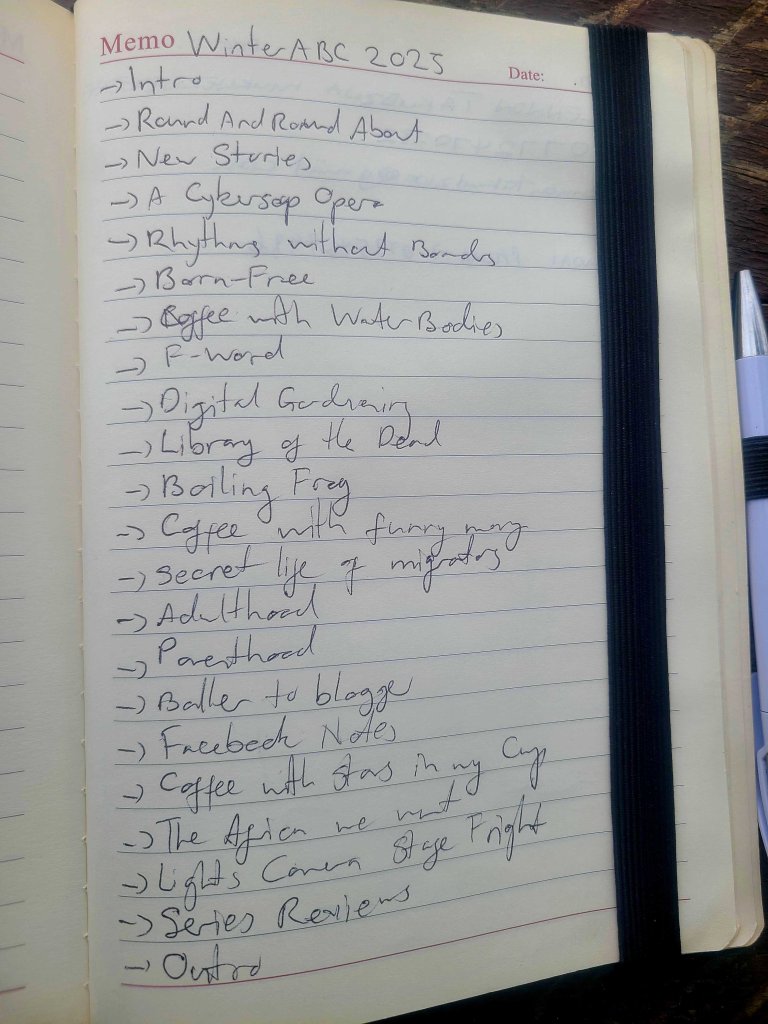 Memo WinterABC 2025
Date:
→Intro
→Round And Round About
→New Stories
→A Cybersoap Opera
→Rhythms without Bonds
→Born-Free
→Coffee with Water Bodies
→F-Word
→Digital Gardening
→Library of the Dead
→Boiling Frog
→Coffee with funny
→Secret life of migrators
→Adulthood
→Parenthood
→Baller to blogger
→Facebook Notes
→Coffee with stars in my Cup
→The Africa we want
→Lights Camera Stage Fright
→Series Reviews
→Outro